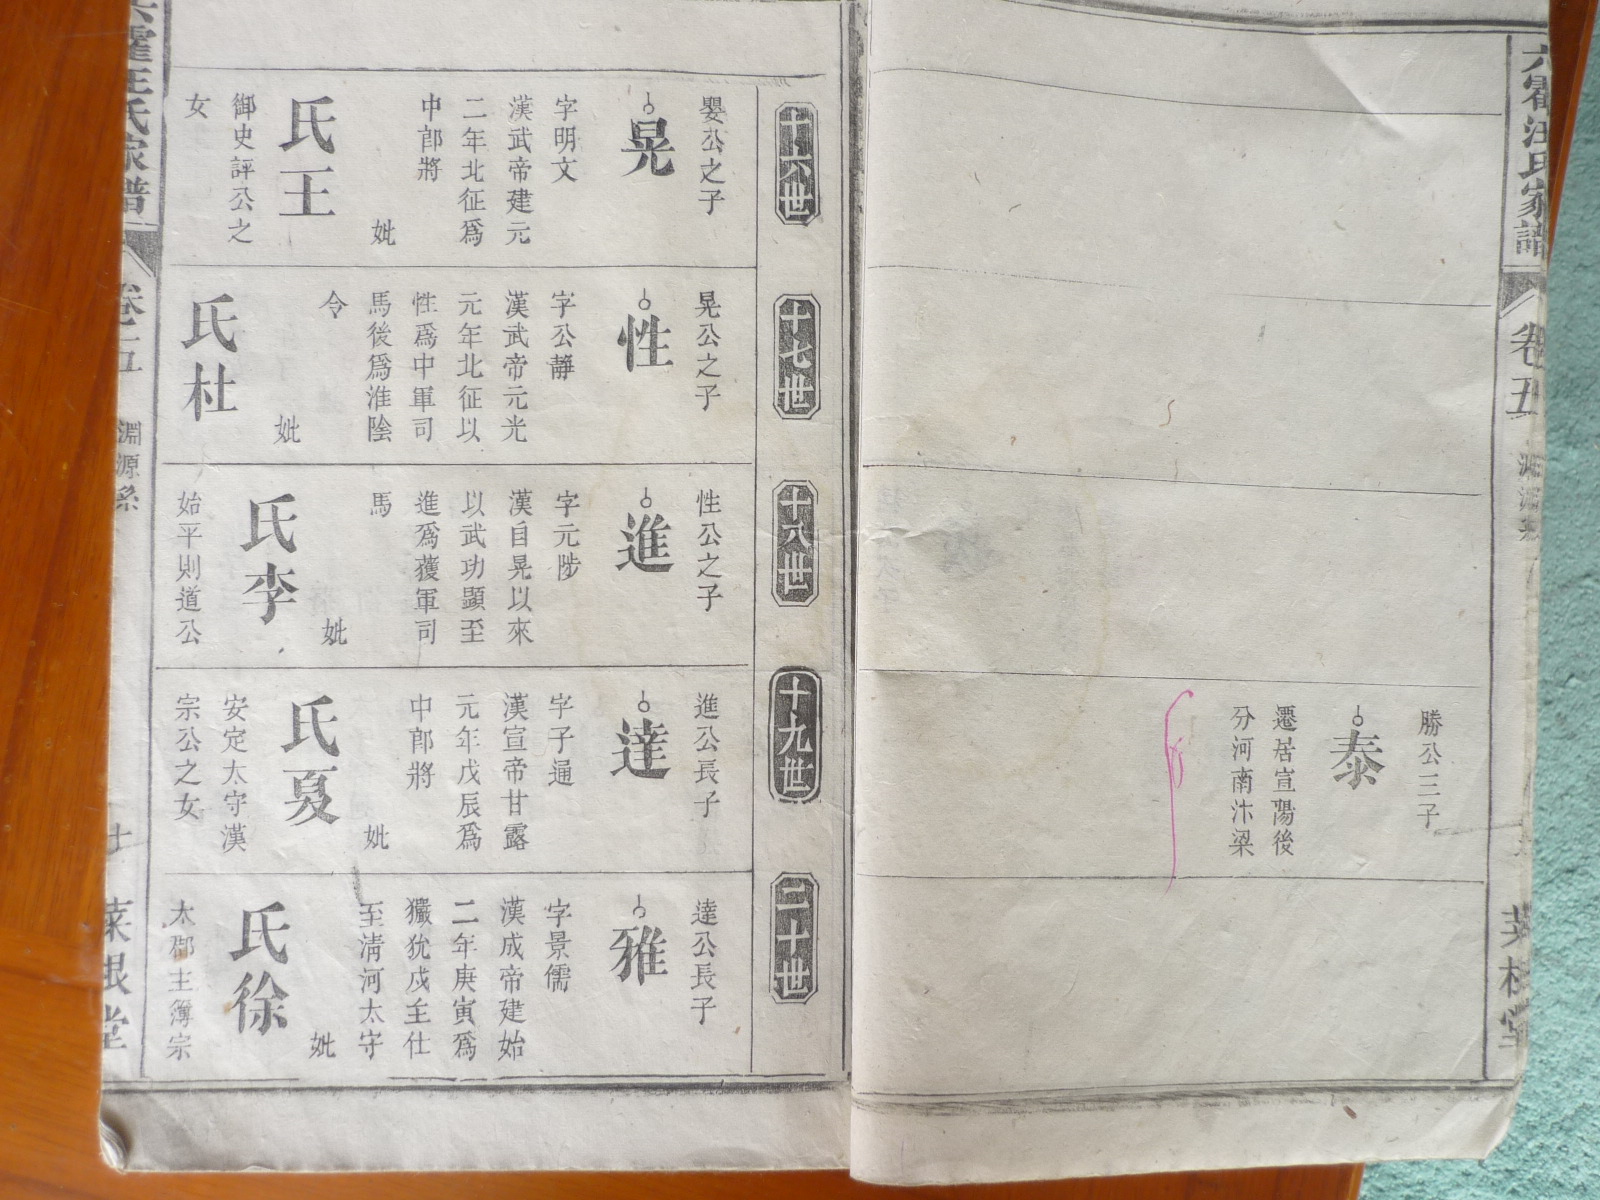 汪氏家譜
卷五
勝公三子
泰
遷居宣陽後
分河南汴梁
十六世
嬰公之子
晃
字明文
漢武帝建元
二年北征爲
中郎將
妣
王氏
御史評公之
女
十七世
晃公之子
性
字公靜
漢武帝元光
元年北征以
性爲中軍司
馬後爲淮陰
令
妣
杜氏
十八世
性公之子
進
字元陟
漢自晃以來
以武功顯至
進爲獲軍司
馬
妣
李氏
始平則道公
十九世
進公長子
達
字子通
漢宣帝甘露
元年戊辰爲
中郎將
妣
夏氏
安定太守漢
宗公之女
二十世
達公長子
雅
字景儒
漢成帝建始
二年庚寅爲
玁狁戍主仕
至清河太守
妣
徐氏
太郡主簿宗
氏家譜
卷五
淵源系